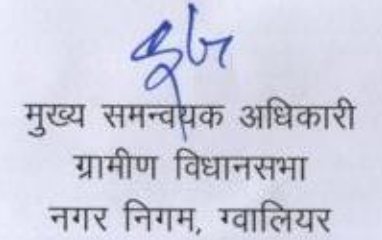 मुख्य समन्वयक अधिकारी
ग्रामीण विधानसभा
नगर निगम, ग्वालियर